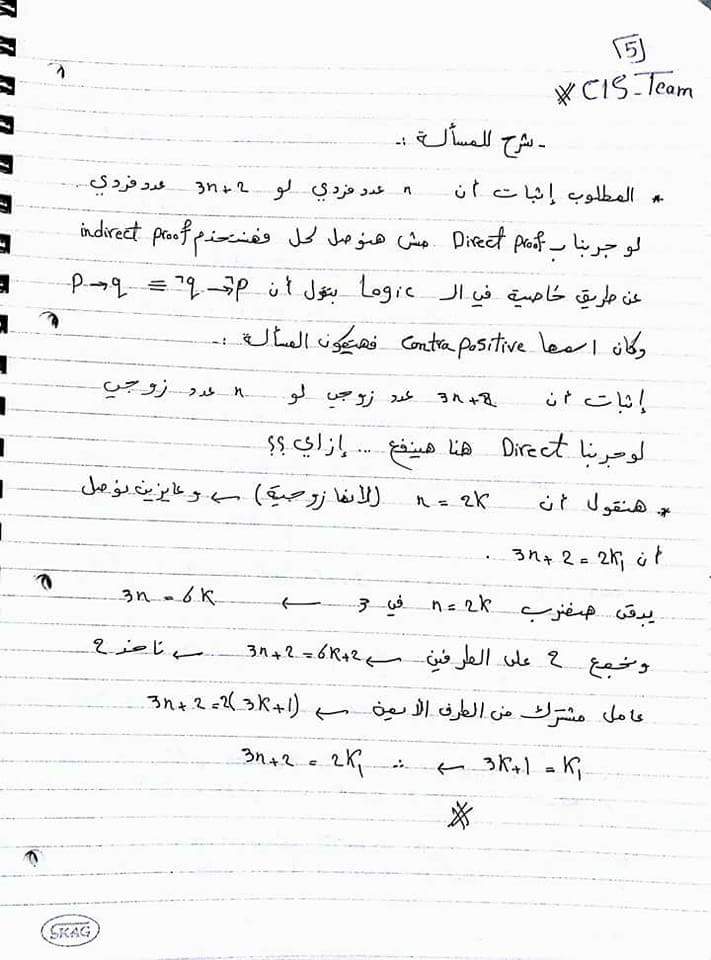 5
※ CIS-Team
- شرح للمسألة :-
* المطلوب إثبات أن n عدد فردي لو 3n+2 عدد فردي.
لو جربنا ب Direct proof مش هنوصل لحل فهنستخدم indirect proof
عن طريق خاصية في ال Logic بتقول أن p→q ≡ ¬q→¬p
وكان اسمها Contra positive فهتكون المسألة :-
إثبات أن 3n+2 عدد زوجي لو n عدد زوجي
لو جربنا Direct هنا هينفع ... إزاي ؟؟
* هنقول أن n = 2K (لأنها زوجية) ← وعايزين نوصل
أن 3n+2 = 2K₁ .
يبقى هنضرب n=2K في 3 ← 3n = 6K
ونجمع 2 على الطرفين ← 3n+2=6K+2 ← ناخد 2
عامل مشترك من الطرف الأيمن ← 3n+2=2(3K+1)
3K+1 = K₁ ← ∴ 3n+2 = 2K₁
※
SKAG